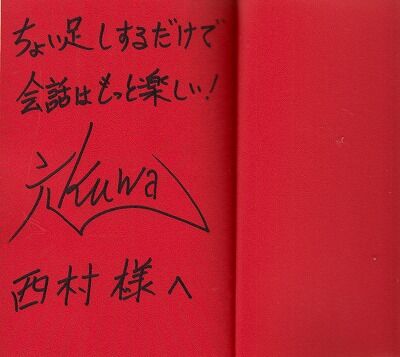 ちょい足しするだけで
会話はもっと楽しい!
西村様へ